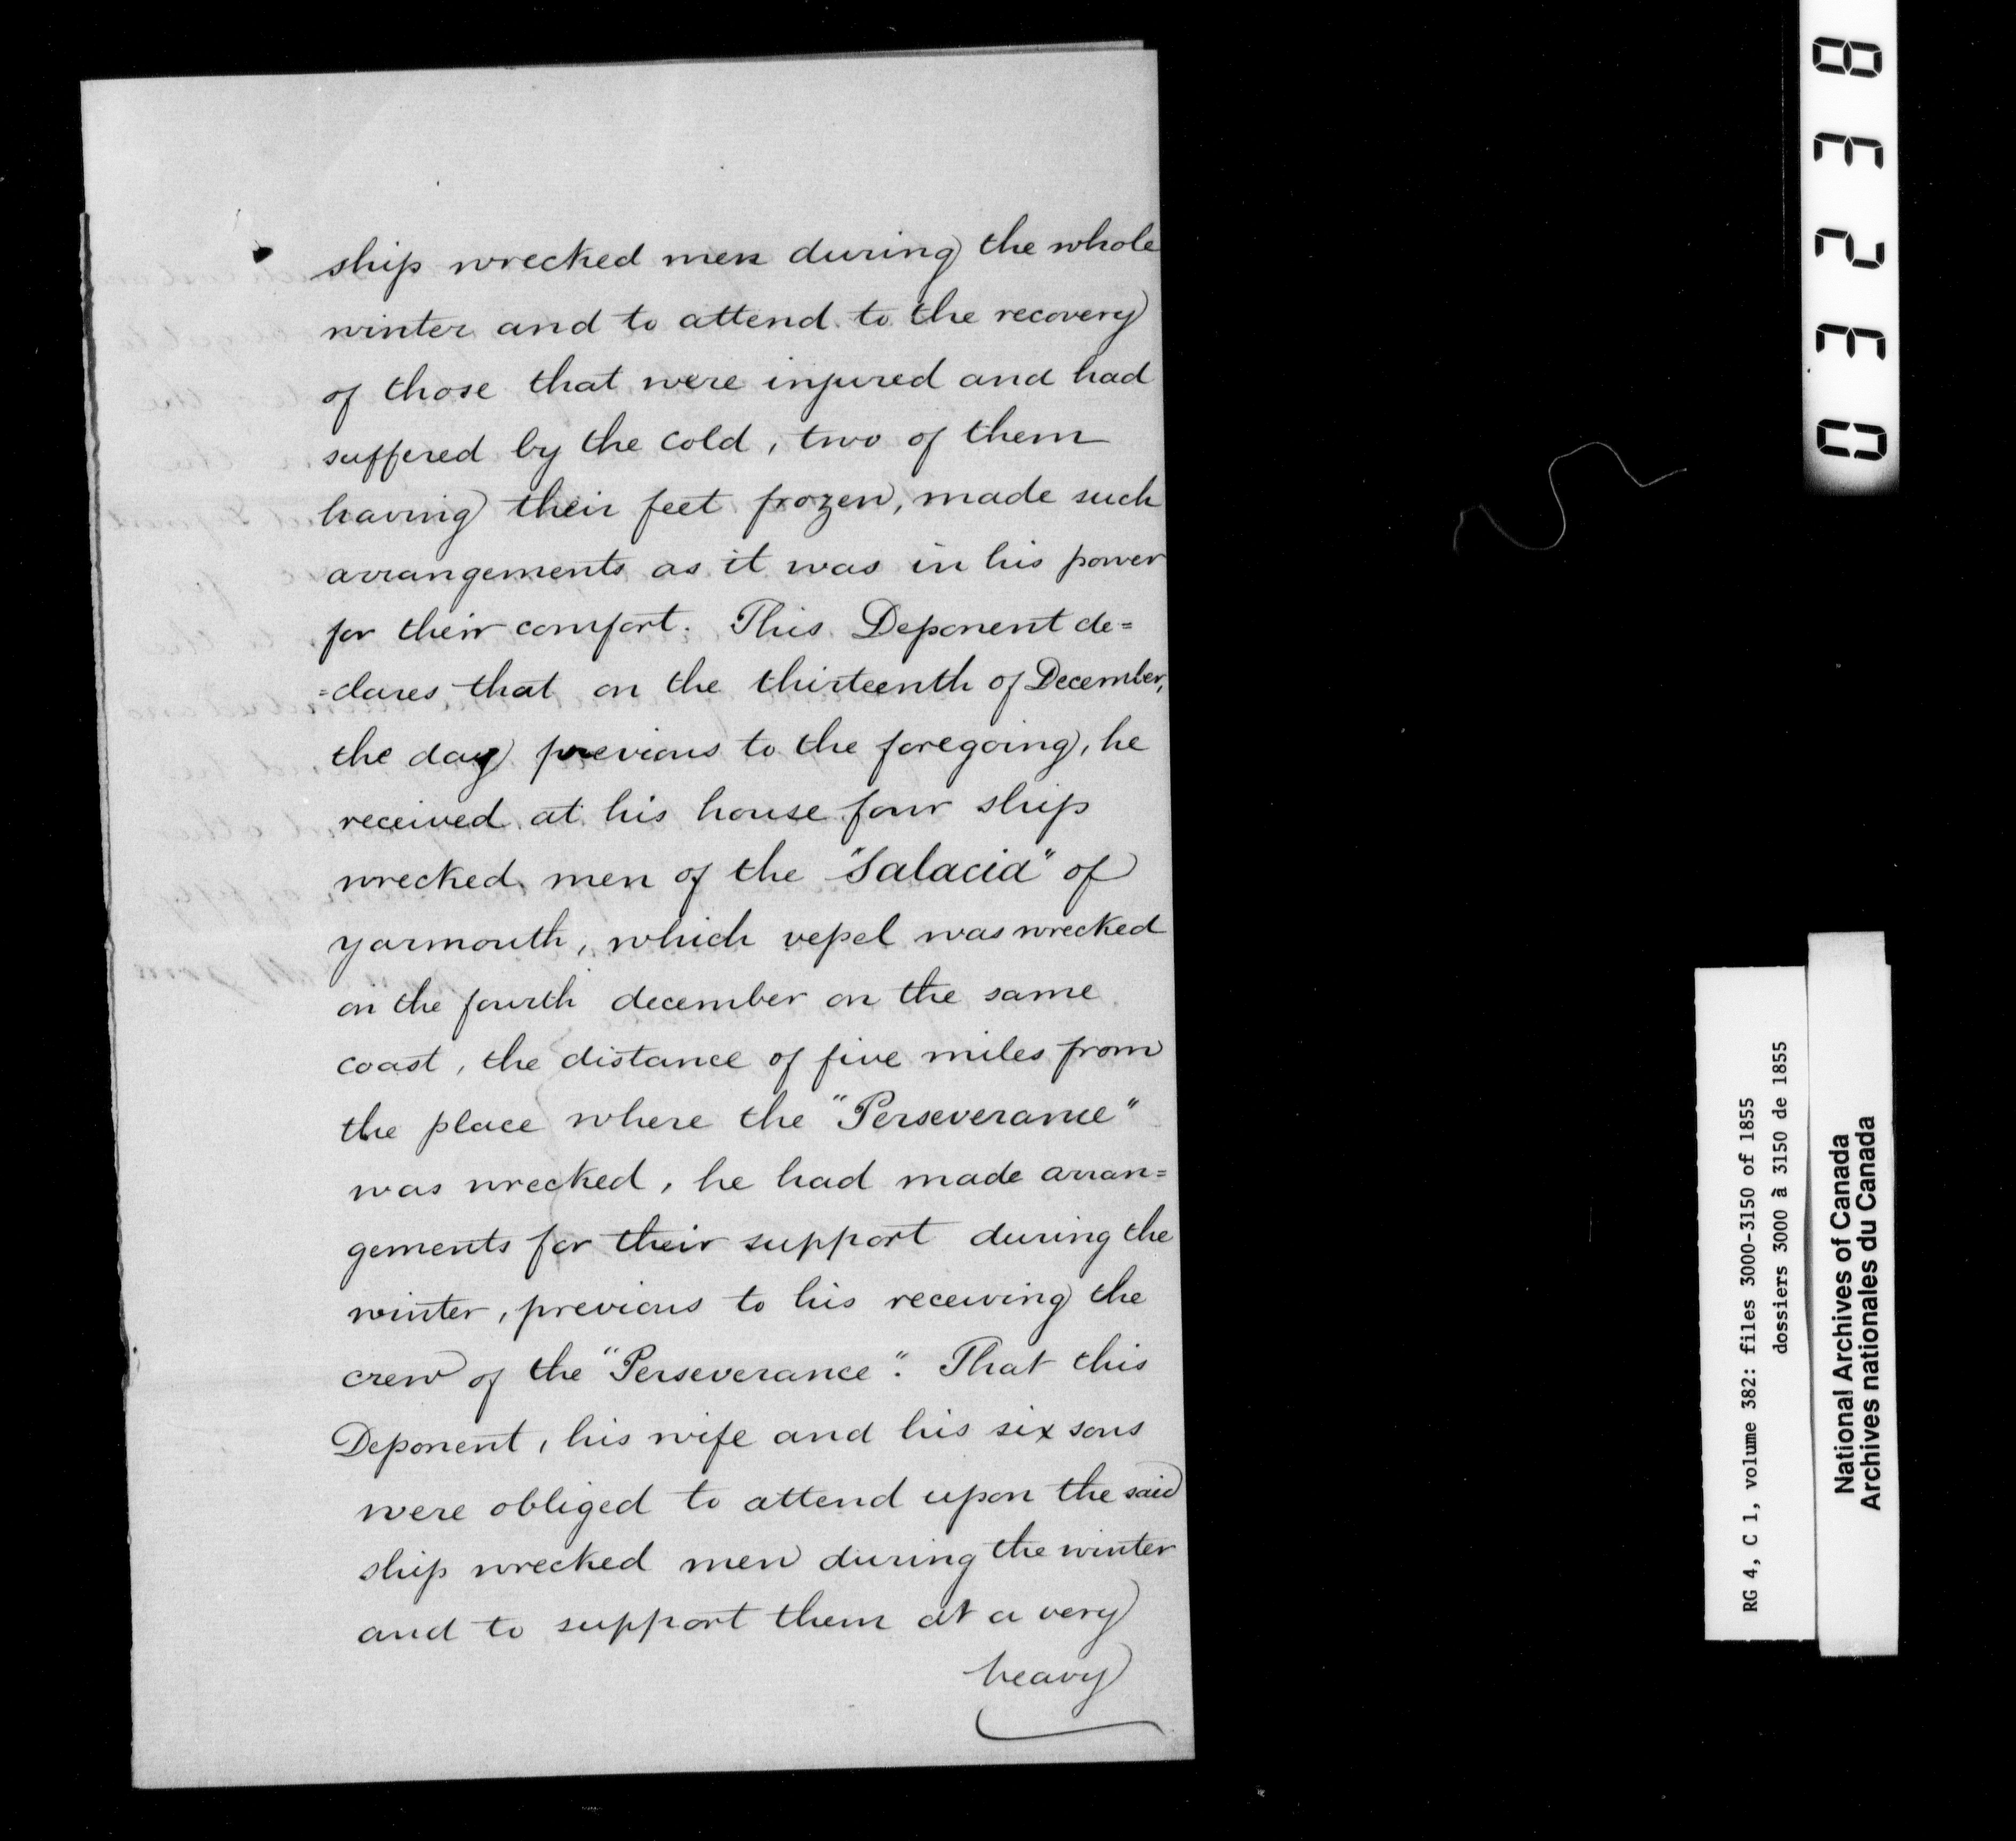 ship wrecked men during the whole
winter and to attend to the recovery
of those that were injured and had
suffered by the cold, two of them
having their feet frozen, made such
arrangements as it was in his power
for their comfort. This Deponent de=
=clares that on the thirteenth of December,
the day previous to the foregoing, he
received at his house four ship
wrecked men of the "Salacia" of
yarmouth, which vessel was wrecked
on the fourth december on the same
coast, the distance of five miles from
the place where the "Perseverance"
was wrecked, he had made arran=
gements for their support during the
winter, previous to his receiving the
crew of the "Perseverance". That this
Deponent, his wife and his six sons
were obliged to attend upon the said
ship wrecked men during the winter
and to support them at a very
heavy
03238
RG 4, C 1, volume 382: files 3000-3150 of 1855
dossiers 3000 à 3150 de 1855
National Archives of Canada
Archives nationales du Canada